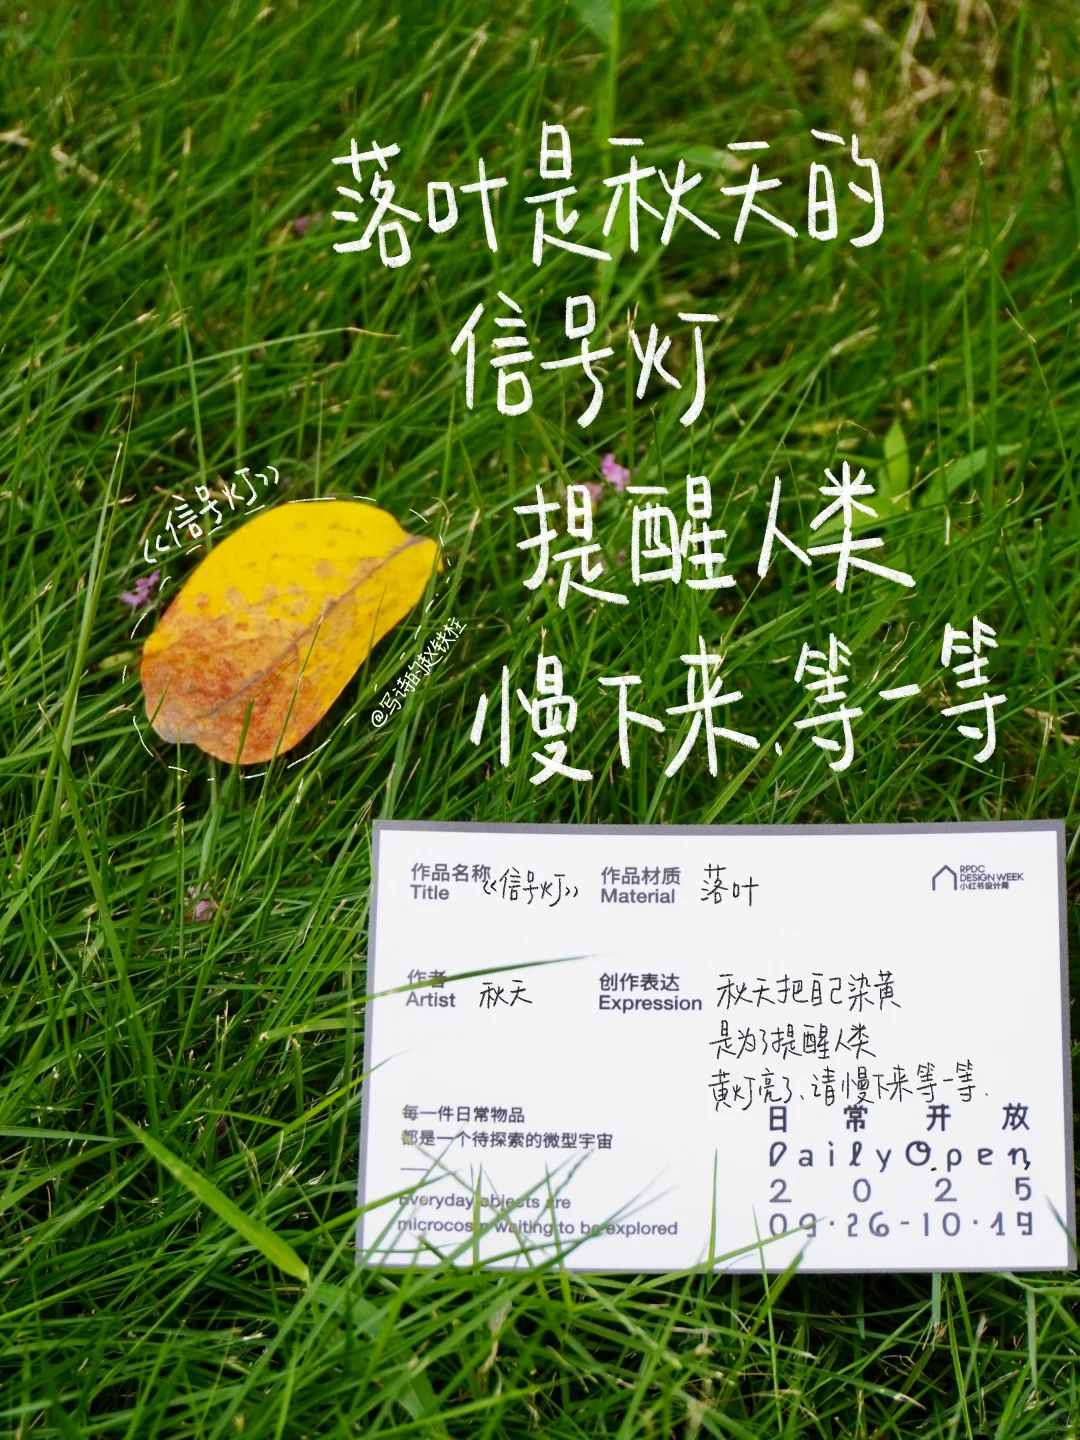 落叶是秋天的
信号灯
提醒人类
慢下来、等一等
《信号灯》
@写诗的赵铁柱
作品名称《信号灯》
Title
作品材质 落叶
Material
RPDC
DESIGN WEEK
小红书设计周
作者 秋天
Artist
创作表达 秋天把自己染黄
Expression
是为了提醒人类
黄灯亮了、请慢下来等一等.
每一件日常物品
都是一个待探索的微型宇宙
Everyday objects are
microcosm waiting to be explored
日常开放
Daily Open
2025
09·26-10·19